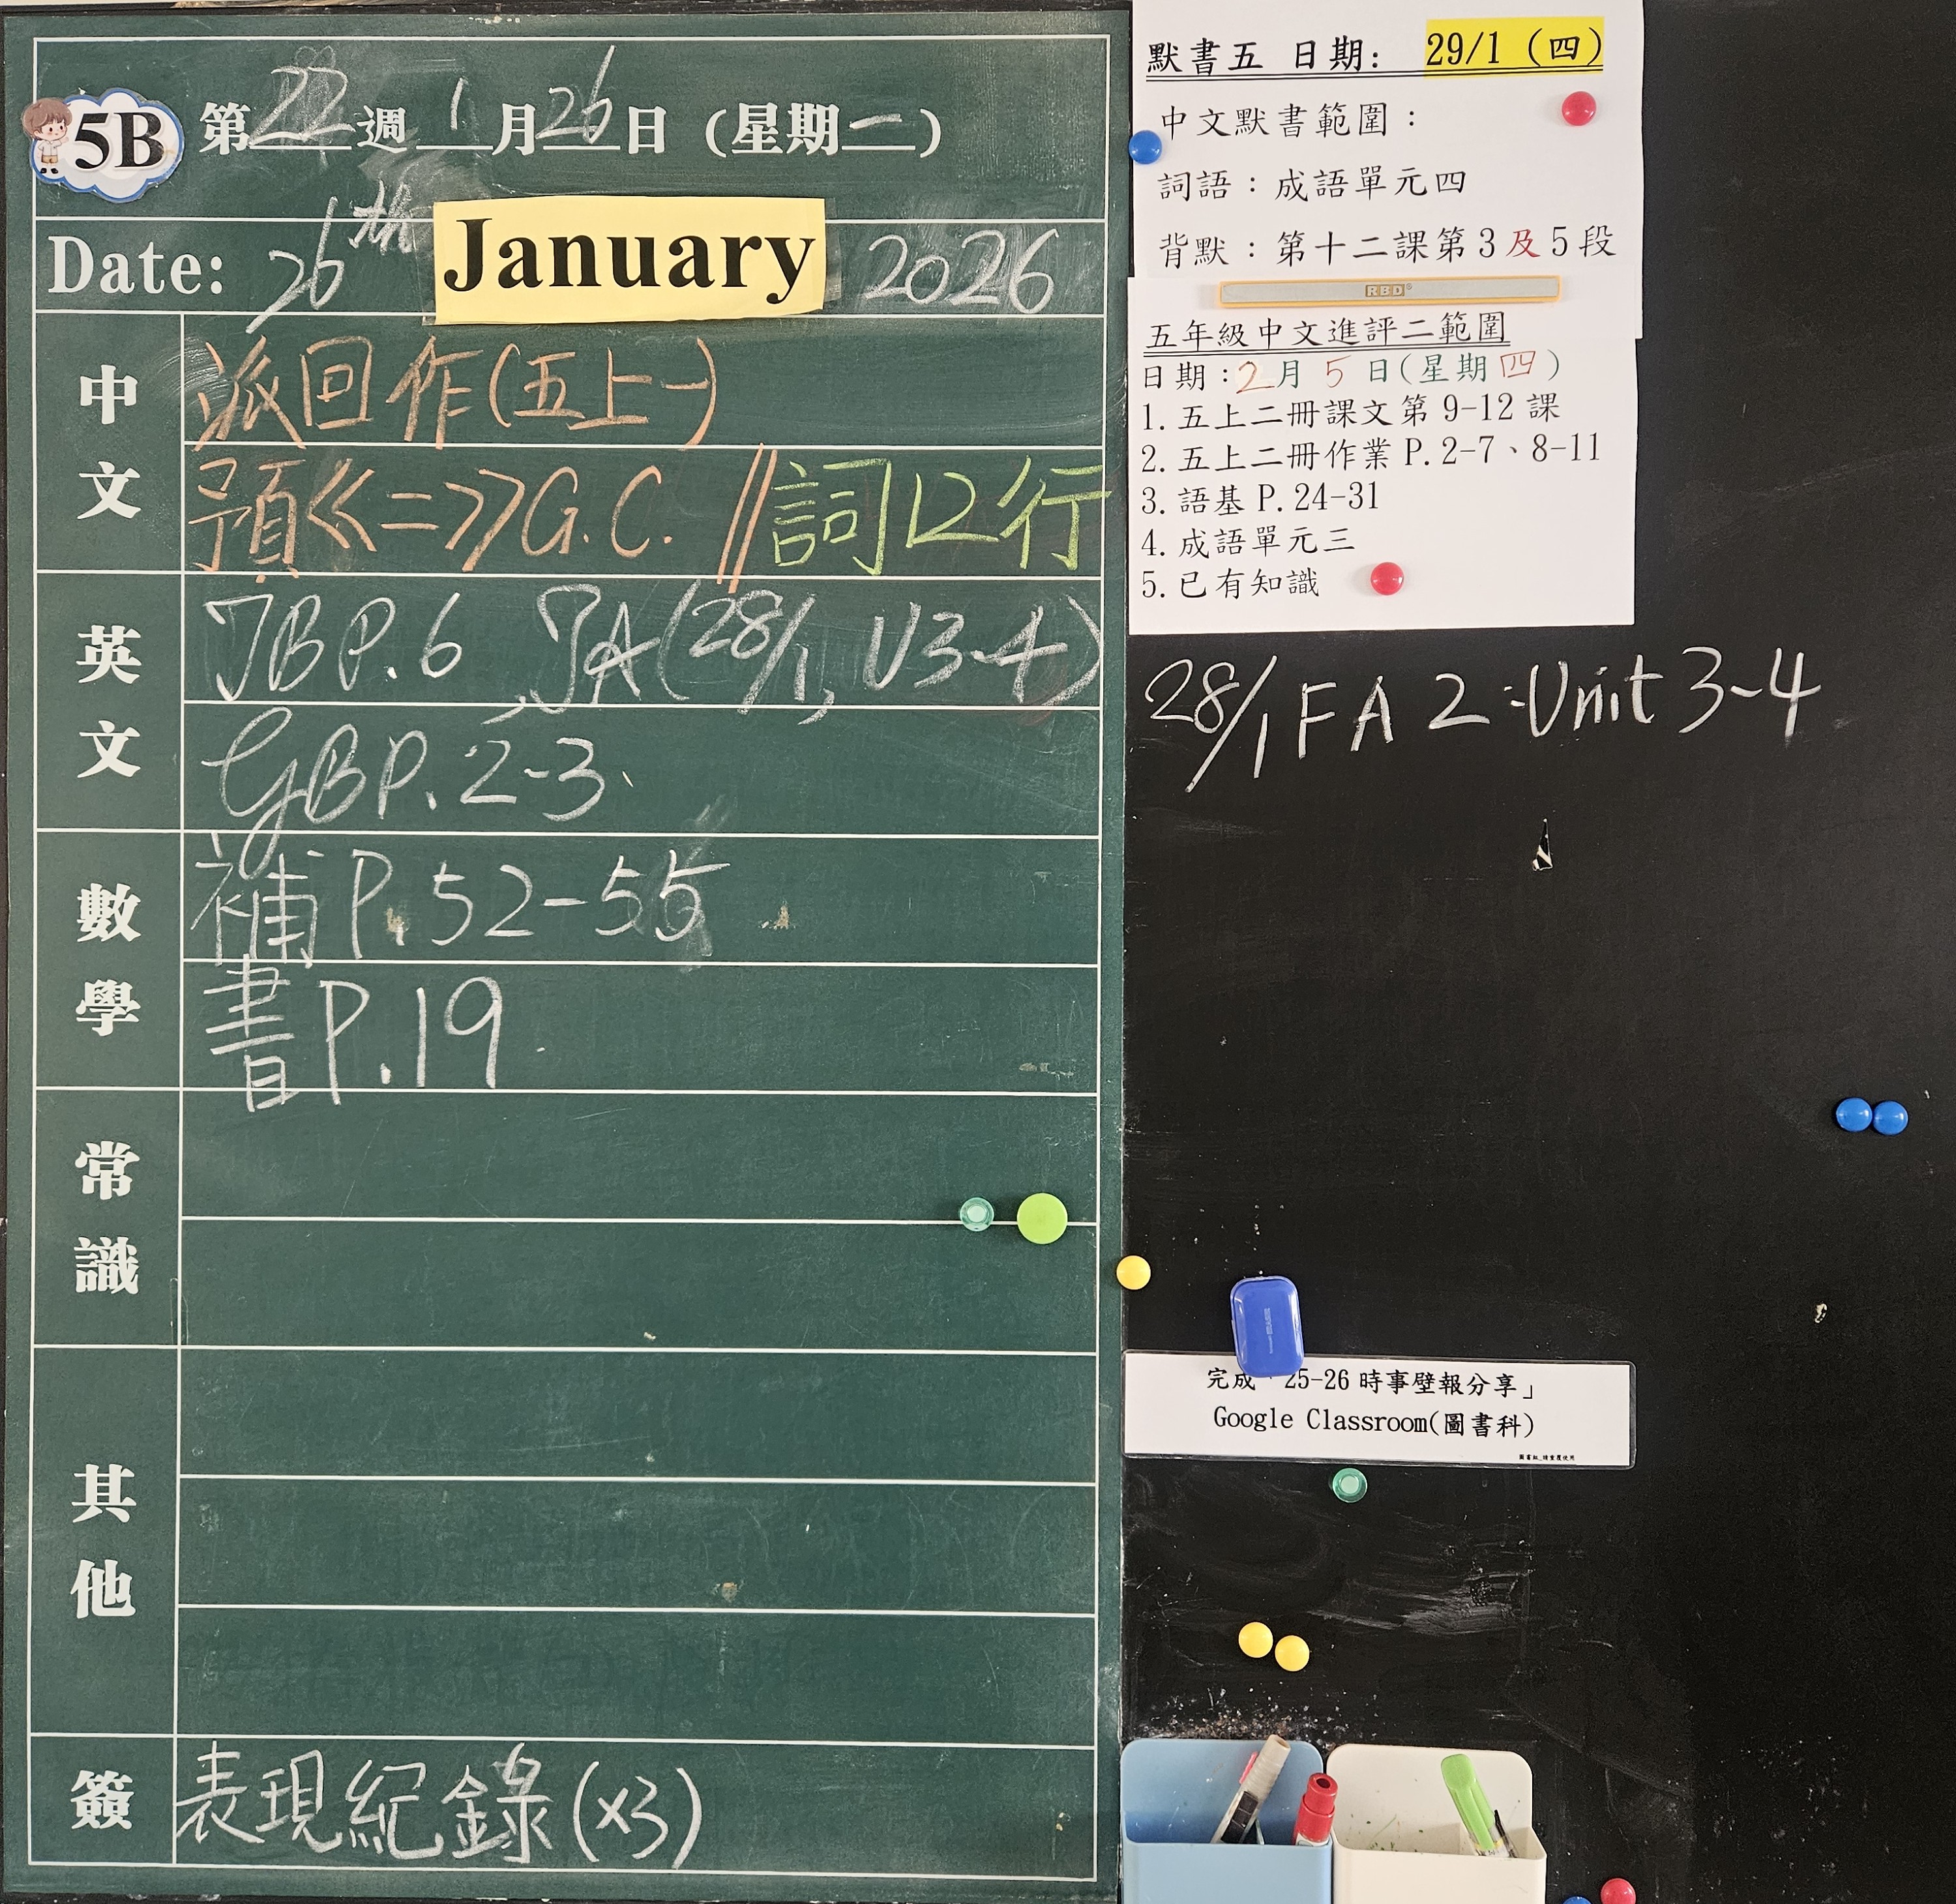 5B 第22週 1月26日 (星期一)
Date: 26th January 2026
中文
派回作(五上一)
預《二》G.C. ∥詞12行
英文
JBP.6, JA(28/1, U3-4)
GBP.2-3
數學
補P.52-55
書P.19
常識
其他
簽
表現紀錄(x3)
默書五 日期: 29/1 (四)
中文默書範圍:
詞語:成語單元四
背默:第十二課第3及5段
RBD
五年級中文進評二範圍
日期:2月5日(星期四)
1. 五上二冊課文第 9-12 課
2. 五上二冊作業 P.2-7、8-11
3. 語基 P.24-31
4. 成語單元三
5. 已有知識
28/1 FA 2:Unit 3-4
完成 25-26 時事壁報分享」
Google Classroom(圖書科)